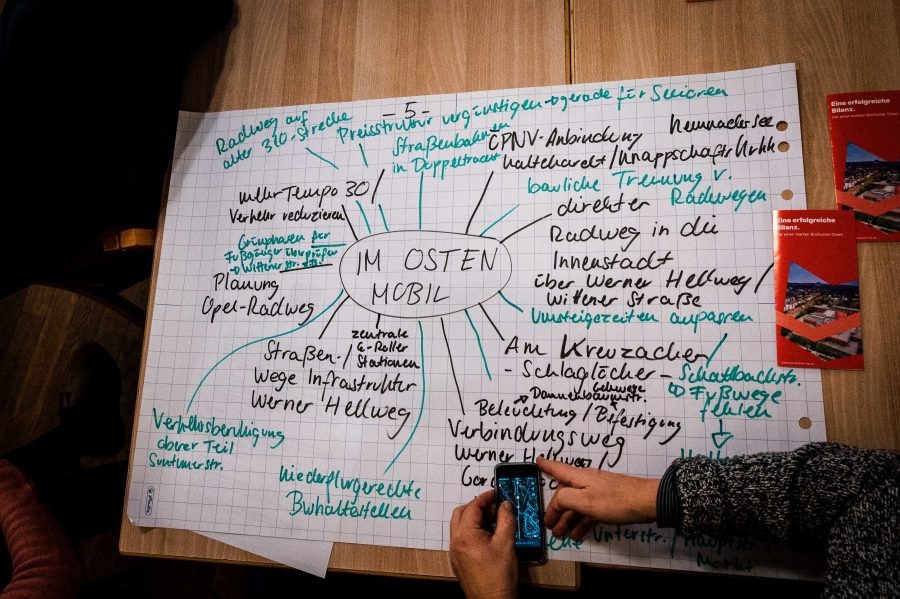 - 5 -
Radweg auf
alter 310-Strecke
Preisstruktur vergünstigen → gerade für Senioren
Straßenbahnen
in Doppeltracht
ÖPNV-Anbindung
Kemnader see
Haltekarett/Knappschaftskrhh
mehr Tempo 30/
Verkehr reduzieren
bauliche Trennung v.
Radwegen
direkter
Radweg in die
Innenstadt
über Werner Hellweg/
Wittener Straße
Grünphasen für
Fußgänger überprüfen
→ Wittenerstr.
Planung
Opel-Radweg
IM OSTEN
MOBIL
Umsteigezeiten anpassen
zentrale
E-Roller
Stationen
Straßen-/
Wege Infrastruktur
Werner Hellweg
Am Kreuzacker/
- Schlaglöcher -
Schattbachstr.
↳ Fußwege
fehlen
Gehwege
Dannenbaumstr.
Beleuchtung/Befestigung
Verbindungsweg
Werner Hellweg/
Verkehrsberuhigung
oberer Teil
Suntumerstr.
Niederflurgerechte
Bushaltestellen
Unterstr./
Markt
Eine erfolgreiche
Bilanz.
Für einen starken Bochumer Osten
Eine erfolgreiche
Bilanz.
Für einen starken Bochumer Osten